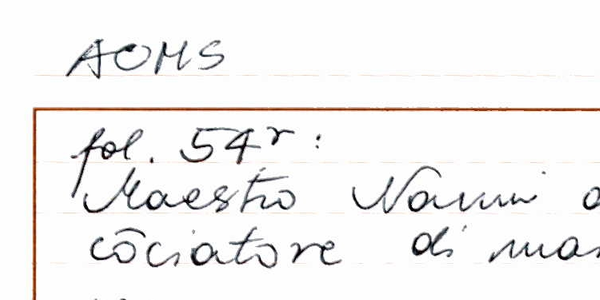 AOMS
fol. 54r:
Maestro Nanni
cōciatore di